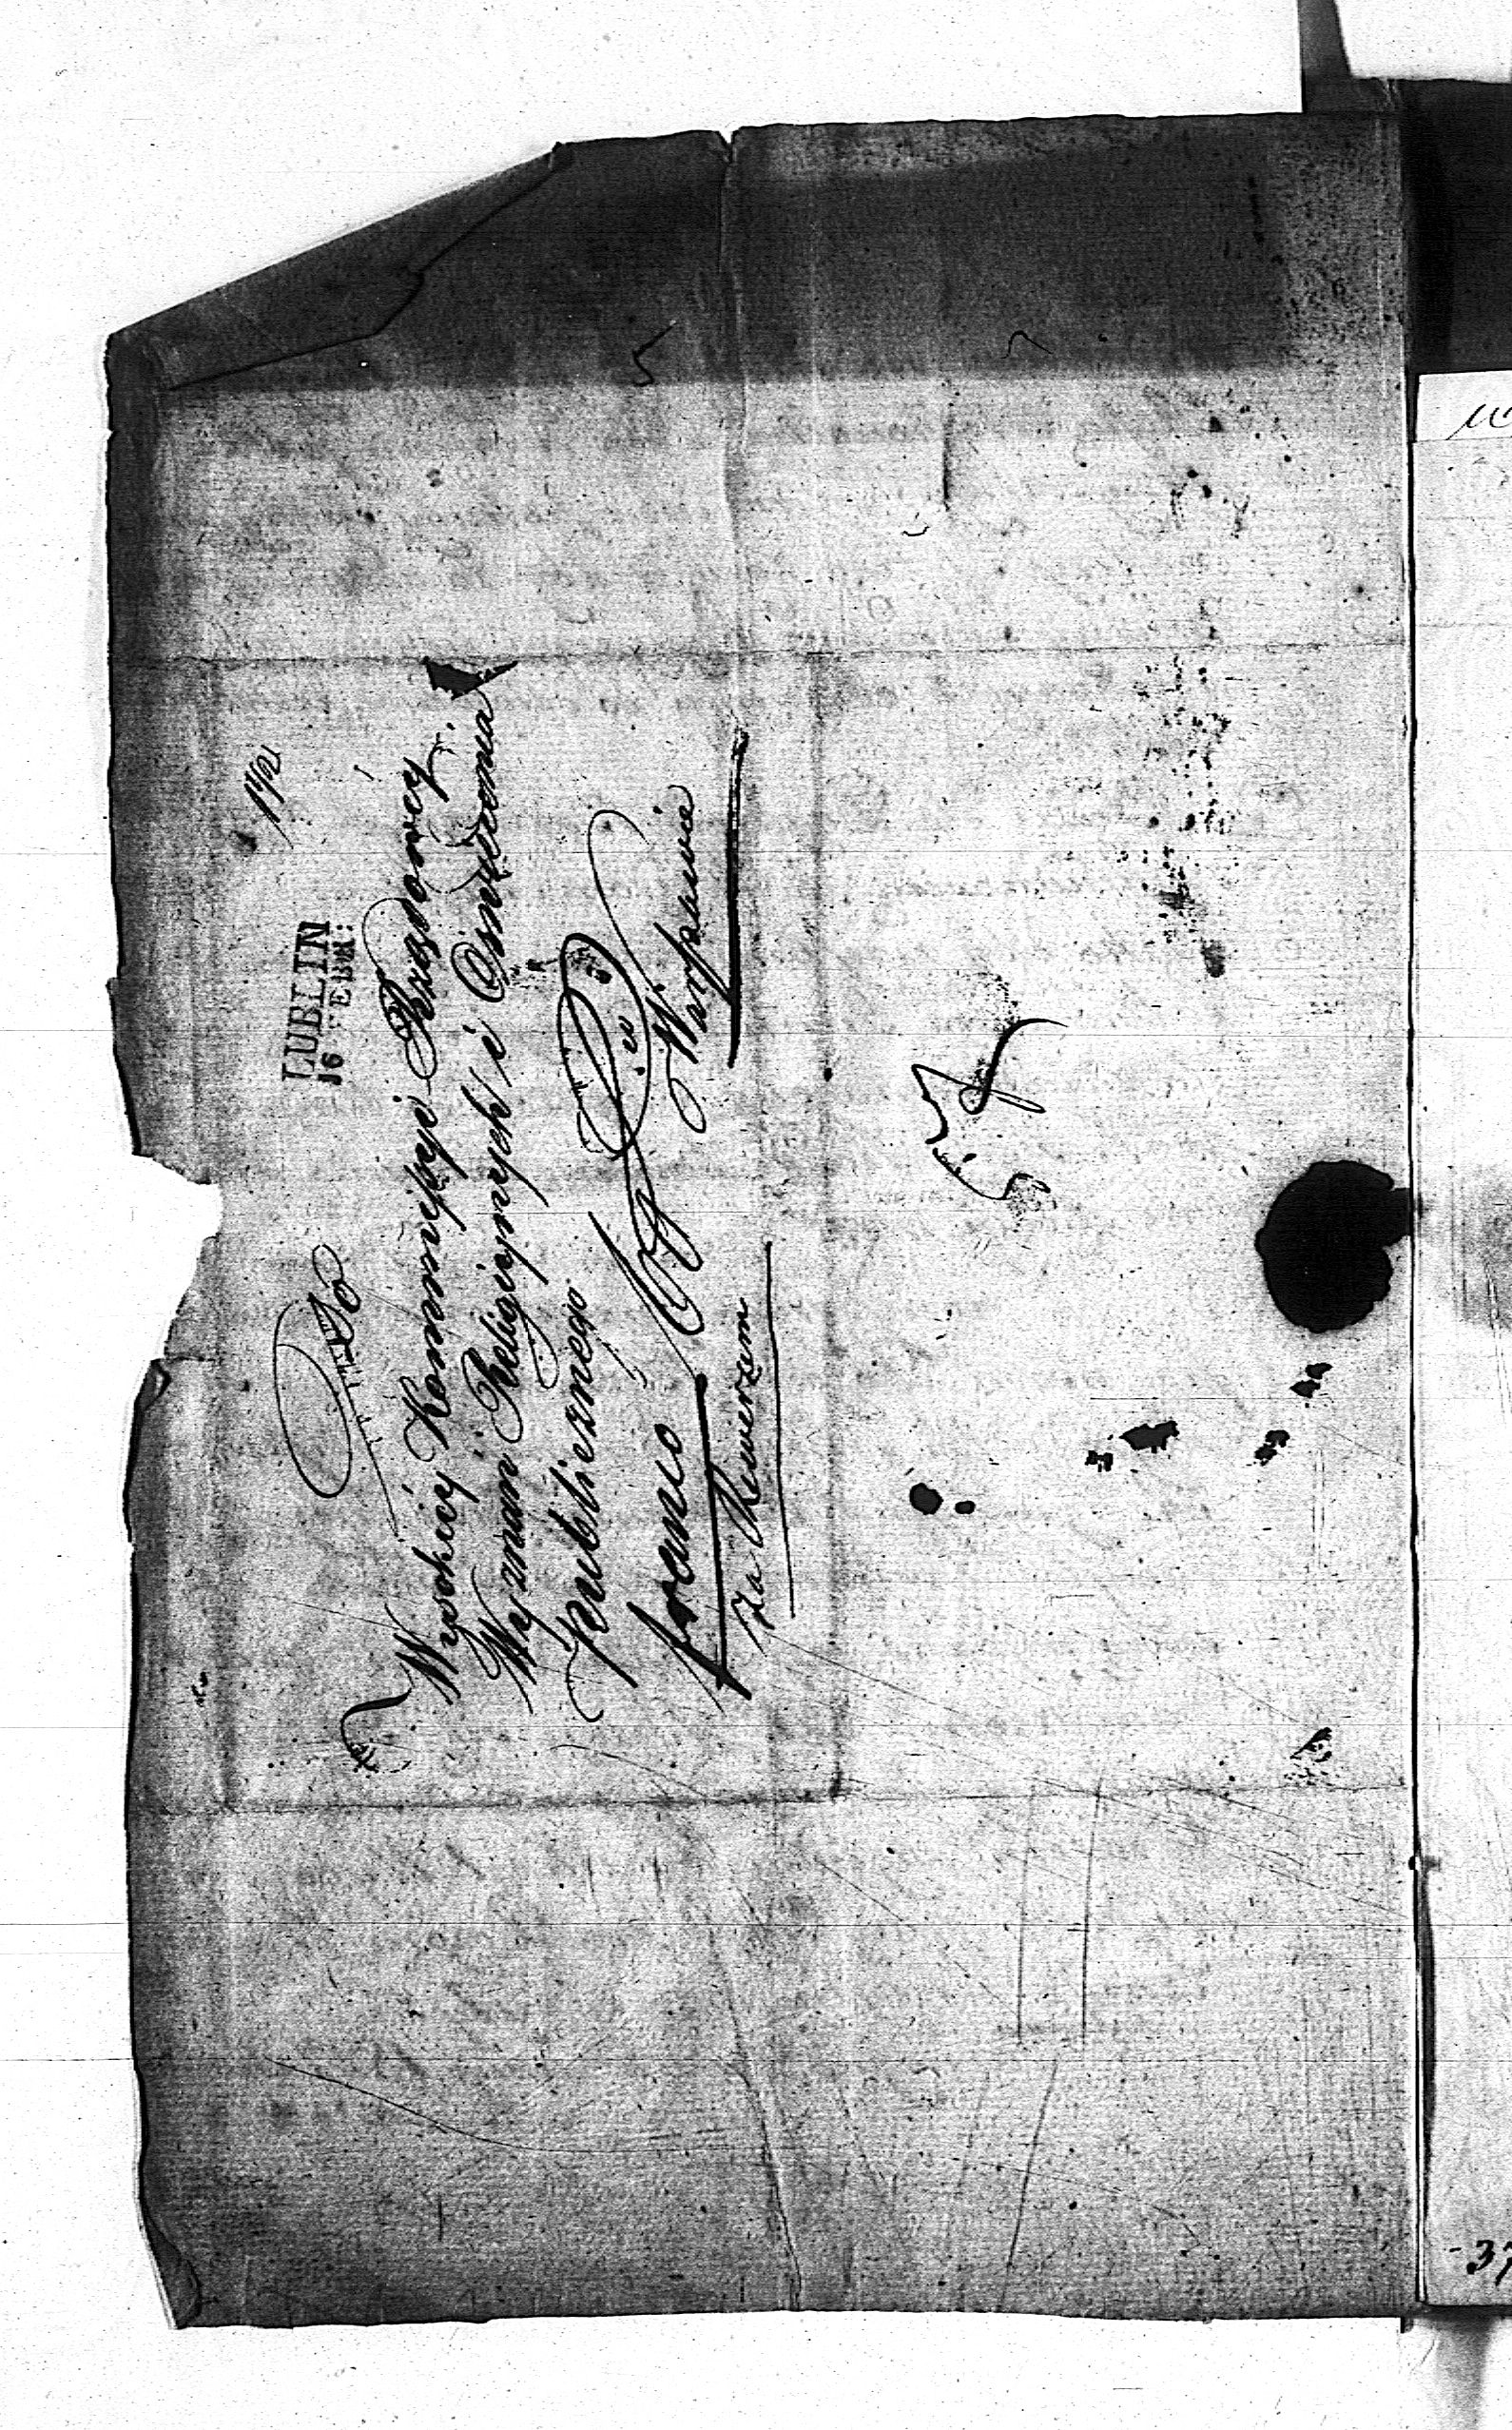 1½
LUBLIN
16 FEBR:
Do
Wysokiéy Kommissyi Rządowéy
Wyznań Religiynych i Oświecenia
Publicznego
w
Warszawie
franco
za Rewersem
37